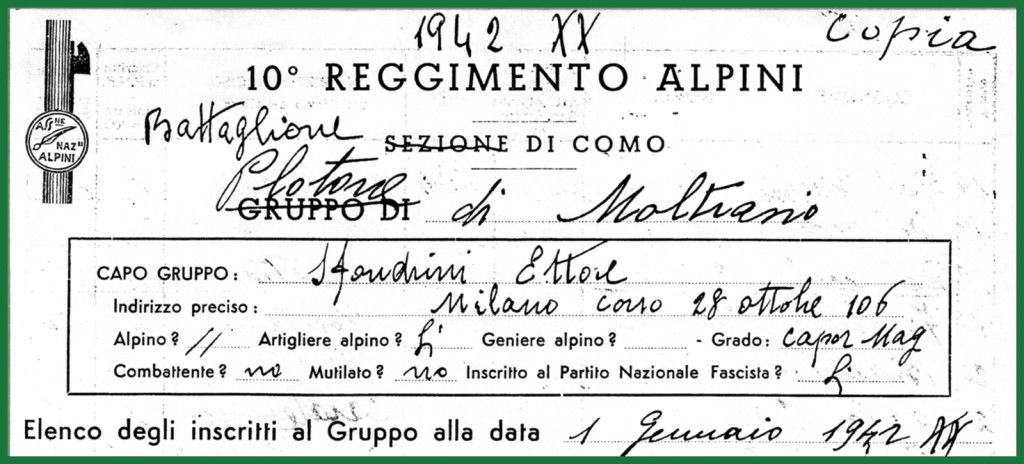 1942 XX Copia
10° REGGIMENTO ALPINI
ASS.NE NAZ.LE ALPINI
Battaglione SEZIONE DI COMO
Plotone GRUPPO DI di Moltrasio
CAPO GRUPPO: Sfondrini Ettore
Indirizzo preciso: Milano Corso 28 ottobre 106
Alpino? // Artigliere alpino? Sì Geniere alpino? - Grado: Capor Mag
Combattente? no Mutilato? no Inscritto al Partito Nazionale Fascista? Sì
Elenco degli inscritti al Gruppo alla data 1 Gennaio 1942 XX